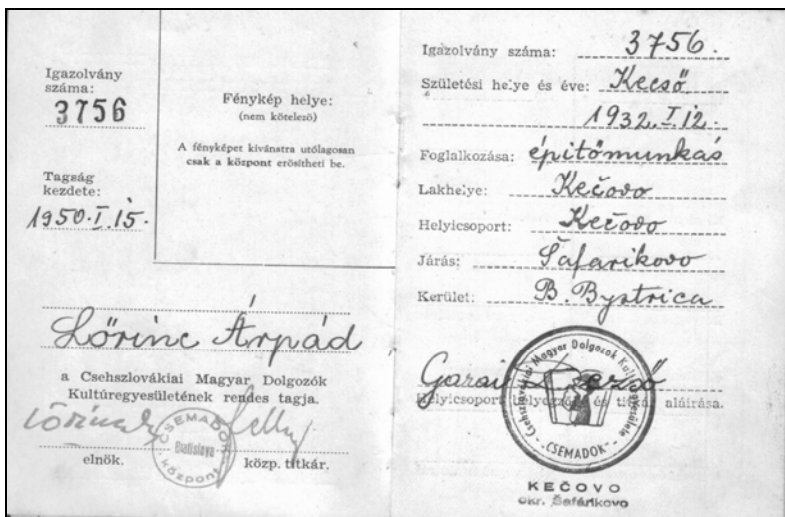 Igazolvány
száma:
3756
Tagság
kezdete:
1950.I.15.
Fénykép helye:
(nem kötelező)
A fényképet kívánatra utólagosan
csak a központ erősítheti be.
Lőrinc Árpád
a Csehszlovákiai Magyar Dolgozók
Kultúregyesületének rendes tagja.
CSEMADOK
Bratislava
központ
elnök.
közp. titkár.
Igazolvány száma: 3756.
Születési helye és éve: Kecső
1932.I.12.
Foglalkozása: építőmunkás
Lakhelye: Kečovo
Helyicsoport: Kečovo
Járás: Šafarikovo
Kerület: B. Bystrica
Garai
Helyicsoport és titkár aláírása.
Csehszlovákiai Magyar Dolgozok Kultúregyesülete
"CSEMADOK"
KEČOVO
okr. Šafárikovo